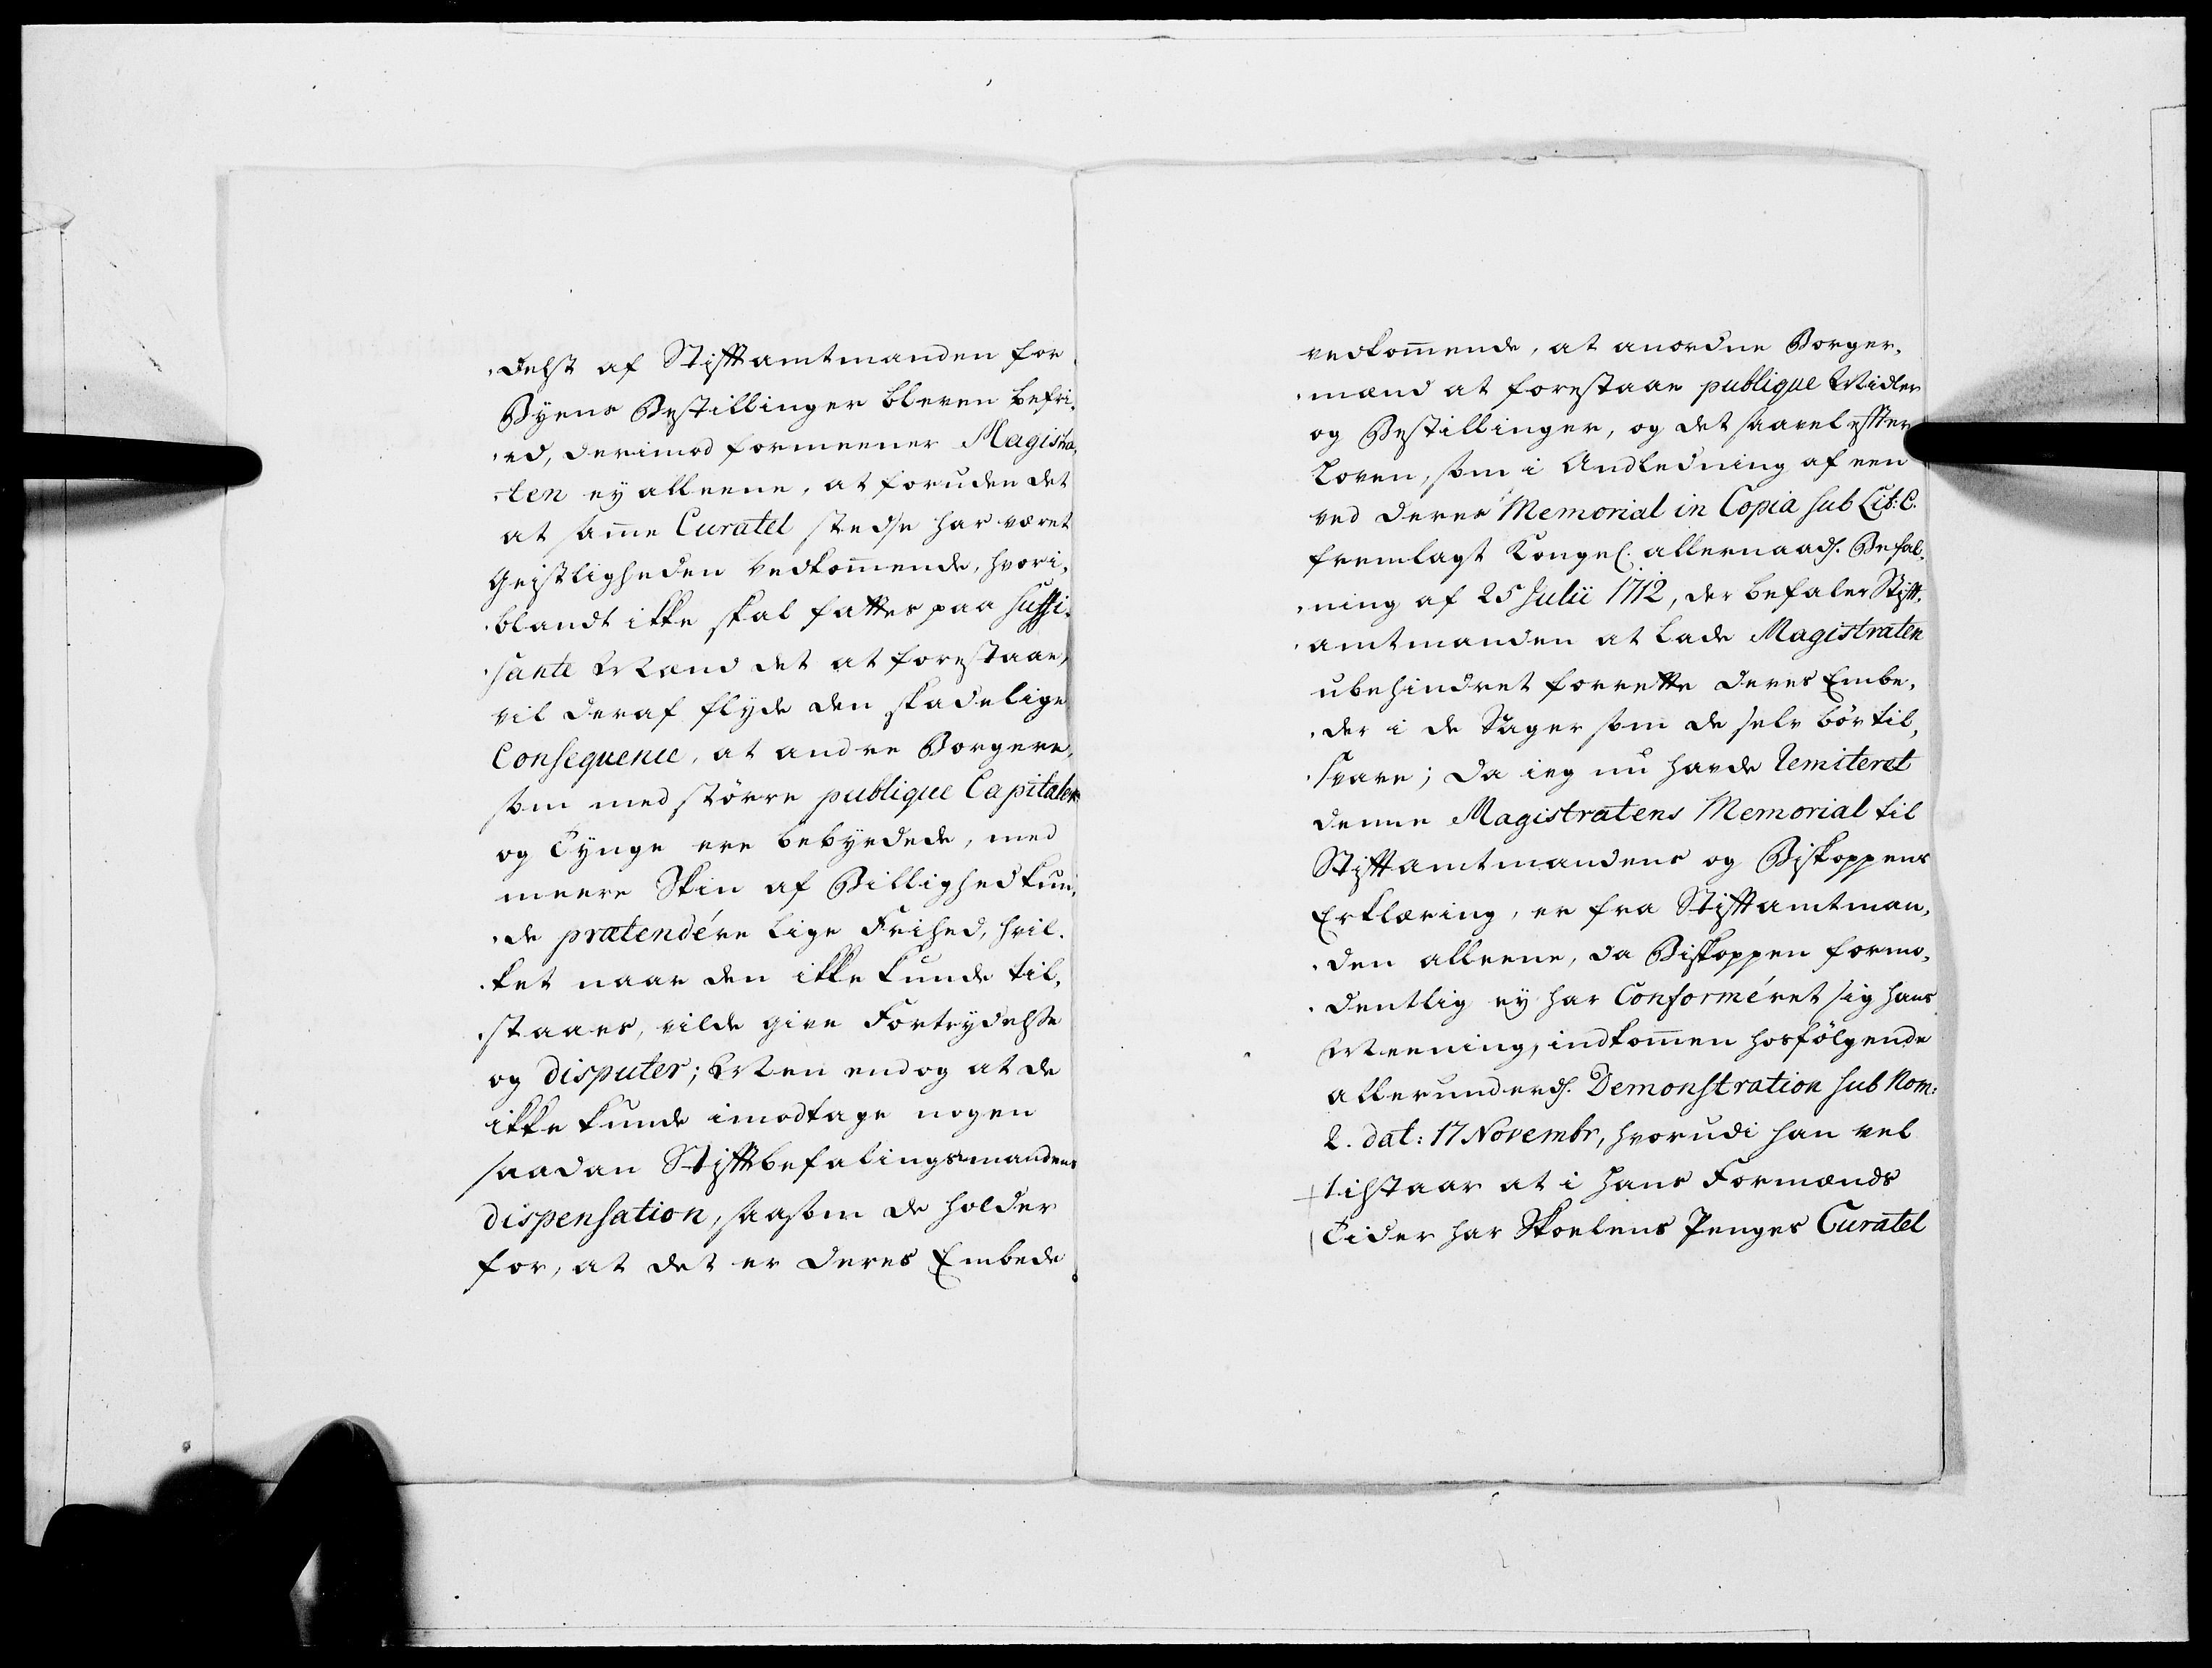 delst af Stifftamtmanden for
Byens Bestillinger bleven befri,
,ed, derimod formeener Magistra,
,ten ey alleene, at foruden det
at sam̄e Curatel stedse har været
Geistligheden vedkom̄ende, hvori,
,blandt ikke skal fattes paa suffi,
,sante Mænd det at forestaae,
vil deraf flyde den skadelige
Consequence, at andre Borgere,
som med større publique Capitaler
og Tynge ere bebyrdede, med
meere Skin af Billighed kun,
,de prætendére lige Frihed, hvil,
,ket naar den ikke kunde til,
,staaes, vilde give Fortrydelse
og disputer; Men endog at de
ikke kunde imodtage nogen
saadan Stifftbefalingsmandens
dispensation, saasom de holder
for, at det er deres Embede
vedkom̄ende, at anordne Borger,
,mænd at forestaae publique Midler
og Bestillinger, og det saavel effter
Loven, som i Andledning af een
ved deres Memorial in Copia sub Lit: C.
fremlagt Kongel. allernaads. Befal,
,ning af 25 Julii 1712, der befaler Stifft,
,amtmanden at lade Magistraten
ubehindret forrette deres Embe,
,der i de Sager som de selv bør til,
,svare; Da ieg nu havde remiteret
denne Magistratens Memorial til
Stifftamtmandens og Biskoppens
Erklæring, er fra Stifftamtman,
,den alleene, da Biskoppen formo,
,dentlig ey har Conforméret sig hans
Meening, indkom̄en hosfølgende
allerunderds. Demonstration sub Nom:
2. dat: 17 Novembr, hvorudi han vel
tilstaar at i hans Formænds
Tider har Skoelens Penges Curatel